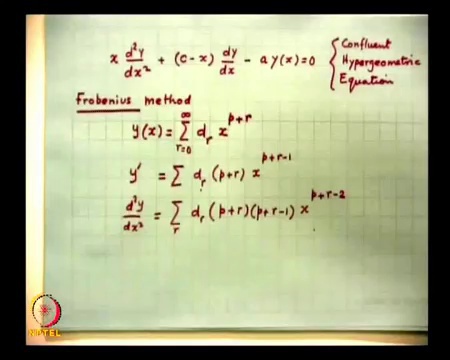 x d²y/dx² + (c-x) dy/dx - a y(x) = 0 { Confluent Hypergeometric Equation
Frobenius method
y(x) = ∑_{r=0}^{∞} d_r x^{p+r}
y′ = ∑ d_r (p+r) x^{p+r-1}
d²y/dx² = ∑_r d_r (p+r)(p+r-1) x^{p+r-2}
NPTEL